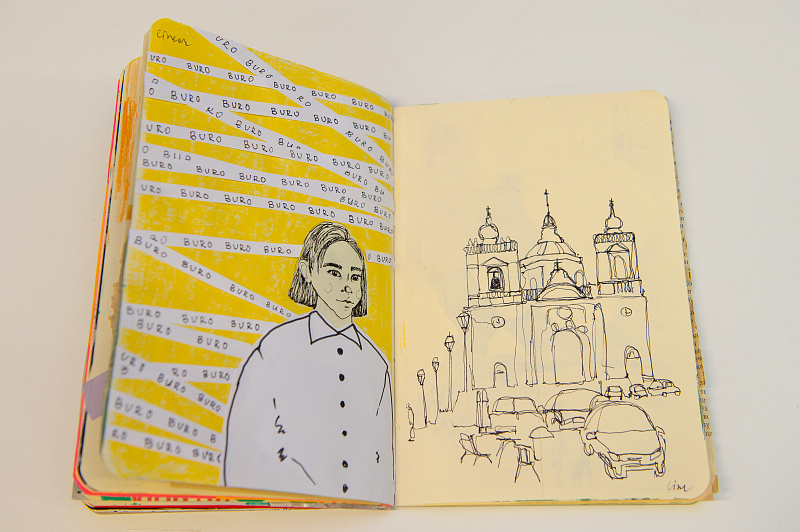 URO BURO RO BURO
URO BURO BURO BURO BURO BURO
O BURO BURO BURO BURO BURO
RO BURO BU
URO BURO BURO BURO BURO BURO
BURO BU
BURO BURO BURO BURO BURO
BURO
URO BURO BURO BURO BURO BURO
RO BURO BURO BURO O BURO
BURO BURO BURO BURO
BURO BURO BURO
BURO BURO
URO RO BURO
B BURO BURO
BURO BURO B
RO BURO BURO BURO